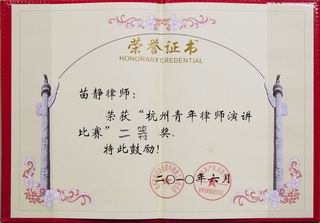 荣誉证书
HONORARY CREDENTIAL
苗静律师：
荣获“杭州青年律师演讲
比赛”二等奖。
特此鼓励！
二〇一〇年六月